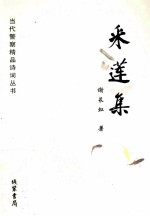 当代警察精品诗词丛书
采莲集
谢长虹 著
线装书局